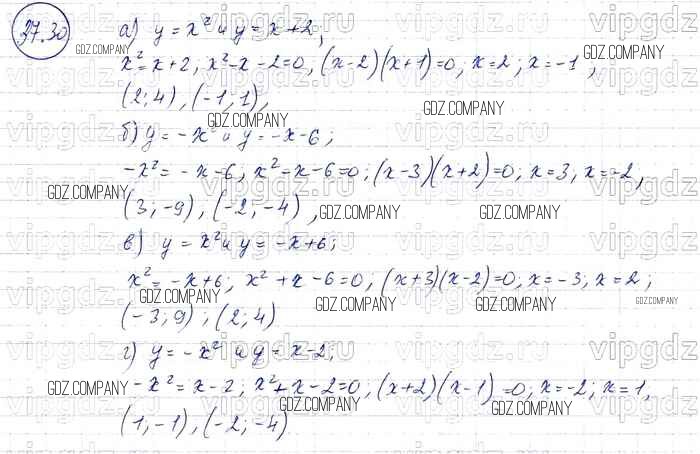 37.30 а) y = x² и y = x + 2,
x² = x + 2, x² - x - 2 = 0, (x - 2)(x + 1) = 0, x = 2; x = -1,
(2; 4), (-1, 1),
б) y = -x² и y = -x - 6;
-x² = -x - 6, x² - x - 6 = 0; (x - 3)(x + 2) = 0; x = 3, x = -2,
(3; -9), (-2; -4),
в) y = x² и y = -x + 6;
x² = -x + 6; x² + x - 6 = 0; (x + 3)(x - 2) = 0, x = -3; x = 2;
(-3; 9); (2; 4)
г) y = -x² и y = x - 2;
-x² = x - 2, x² + x - 2 = 0; (x + 2)(x - 1) = 0; x = -2; x = 1,
(1, -1), (-2; -4)